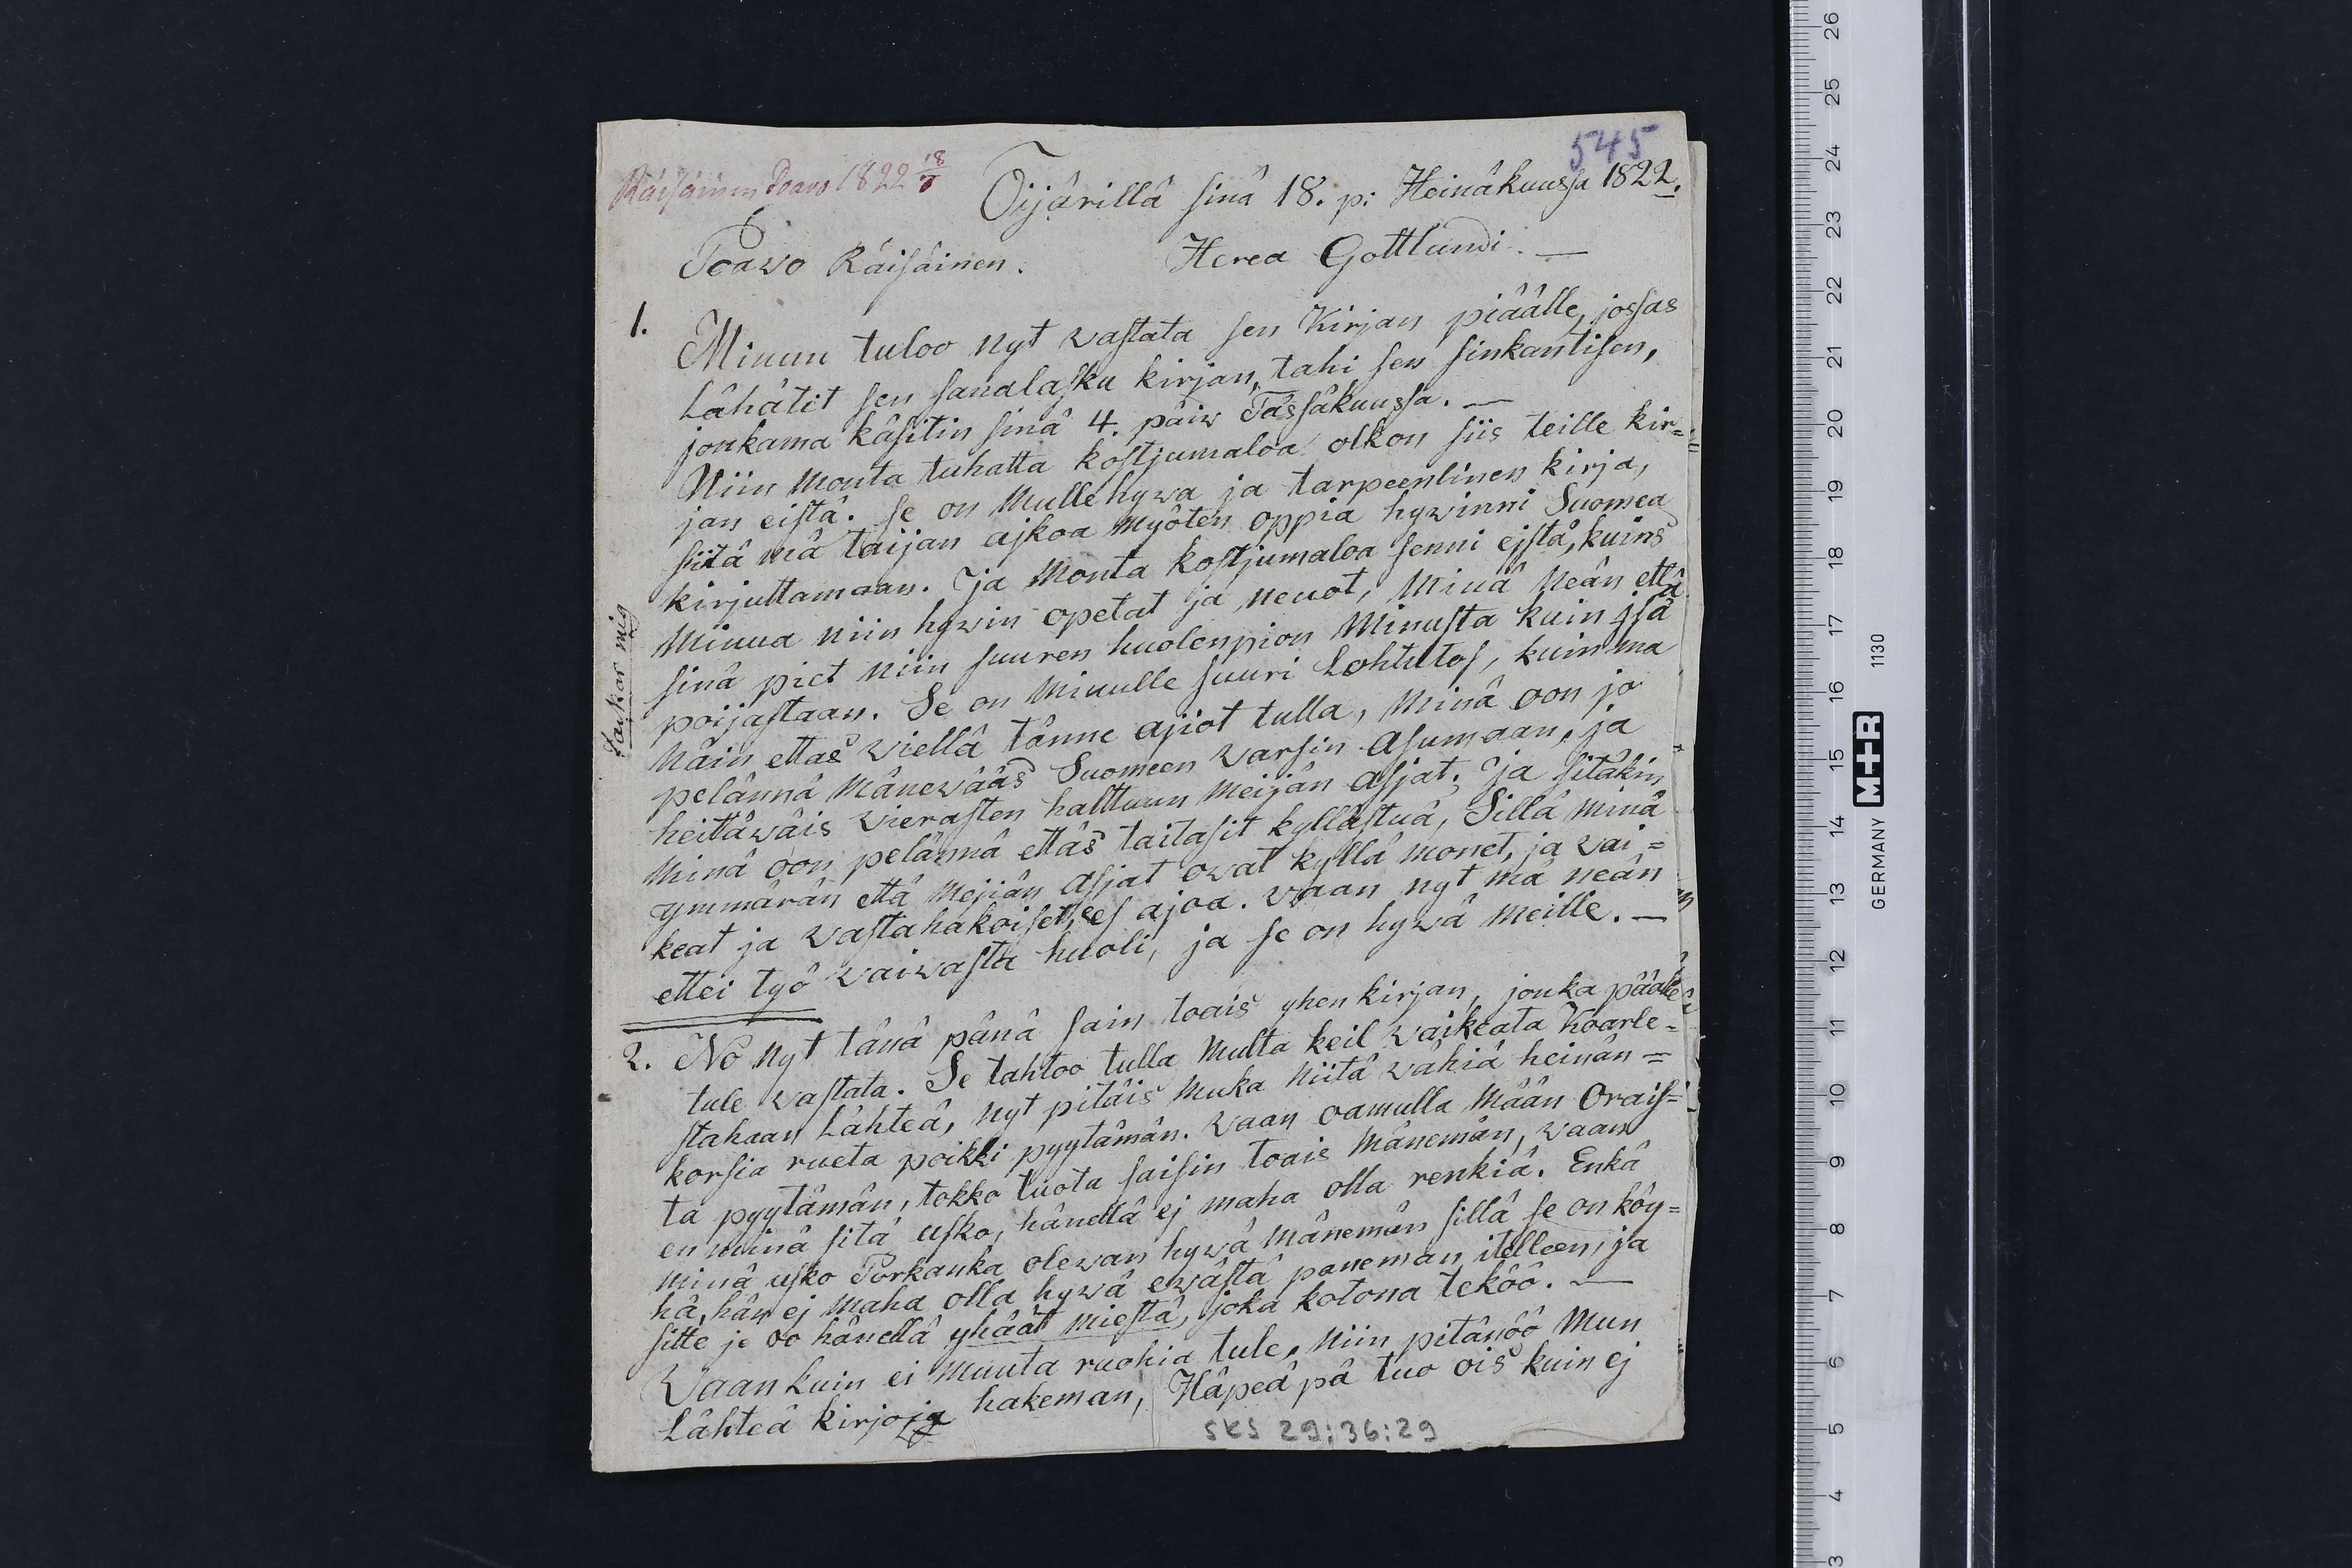 545
Räisäinen Poavo 1822 18/7
Öijärillä sinä 18. p: Heinäkuussa 1822.
Poavo Räisäinen. Herra Gottlundi. —
1. Minun tuloo nyt vastata sen Kirjan piäälle, jossas
Lähätit sen sanalasku kirjan, tahi sen sinkantisen,
jonkama käsitin sinä 4. päiv Tässäkuussa. —
Niin Monta tuhatta kostjumaloa olkon siis teille kir=
jan eistä. Se on Mulle hyvä ja tarpeenlinen kirja,
siitä mä taijan ajkoa myöten oppia hyvinni Suomea
kirjuttamaan. Ja Monta kostjumaloa senni ejstä, kuins
Minua niin hyvin opetat ja neuot, Minä Neän että
sinä piet niin suuren huolenpion Minusta kuin jsä
poijastaan. Se on Minulle suuri Lohtutos, kuin ma
Näin ettas viellä tänne ajiot tulla, Minä oon jo
pelännä Mänevääs Suomeen varsin Asumaan, ja
heittäväis vierasten halttuun Meijän Asjat; ja sitäkin
Minä oon pelännä ettäs taitasit kyllästuä, Sillä minä
ymmärän että Mejjän Asjat ovat kyllä monet, ja vai=
keat ja vastahakoiset, ees ajoa. vaan nyt mä neän
ettei työ vaivasta huoli, ja se on hyvä Meille. —
Tankar mig
2. No Nyt tänä pänä sain toais yhen kirjan, jonka pääle
tule vastata. Se tahtoo tulla Multa keil vaikeata Koarle=
stahaan Lähteä, nyt pitäis Muka Niitä vähiä heinän=
korsia rueta poikki pyytämän. vaan oamulla Mään Orais=
ta pyytämän, tokko tuota saisin toais Mänemän, vaan
en minä sitä usko, hänellä ej maha olla renkiä. Enkä
Minä usko Porkanka olevan hyvä Mänemän sillä se on köy=
hä, hän ej Maha olla hyvä evästä paneman itelleen, ja
sitte je oo hänellä yhäät Miestä, joka kotona teköö. —
Vaan kuin ei Muuta ruohia tule, Niin pitänöö Mun
Lähteä kirjoja hakeman, Häpeä pä tuo ois kuin ej
SKS 29:36:29
26
25
24
23
22
21
20
19
18
17
16
15
14
13
12
11
10
9
8
7
6
5
4
3
GERMANY M+R 1130